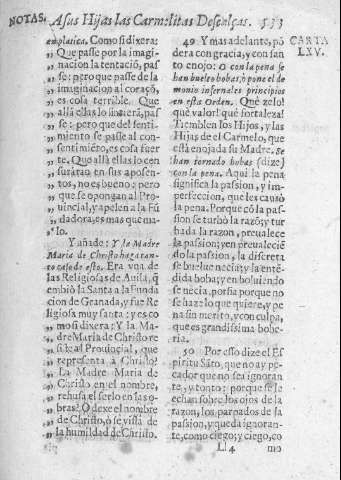 NOTAS. A sus Hijas las Carmelitas Descalças. 533
emplatica. Como si dixera:
„ Que passe por la imagi-
„ nacion la tentació, pas-
„ se: pero que passe de la
„ imaginacion al coraçõ,
„ es cosa terrible. Que
„ allá ellas lo sintierá, pas-
„ se: pero que del senti-
„ miento se passe al con-
„ sentimiéto, es cosa fuer
„ te. Que allá ellas lo cen
„ suràran en sus aposen-
„ tos, no es bueno: pero
„ que se opongan al Pro-
„ uincial, y apelen a la Fũ
„ dadora, es mas que ma-
„ lo.
Y añade: Y la Madre
Maria de Christo haga tan-
to caso de esto. Era vna de
las Religiosas de Auila, q̃
embiò la Santa a la Funda
cion de Granada, y fue Re
ligiosa muy santa: y es co
„ mo si dixera: Y la Ma-
„ dre Maria de Christo re
„ sista al Prouincial, que
„ representa à Christo?
„ La Madre Maria de
„ Christo en el nombre,
„ rehusa el serlo en las o-
„ bras? O dexe el nombre
„ de Christo, ò se vista de
„ la humildad de Christo.
CARTA
LXV.
49 Y mas adelante, pó
dera con gracia, y con san
to enojo: O con la pena se
han buelto bobas, ò pone el de
monio infernales principios
en esta Orden. Què zelo!
què valor! què fortaleza!
Tiemblen los Hijos, y las
Hijas de el Carmelo, que
està enojada su Madre. Se
han tornado bobas (dize)
con la pena. Aqui la pena
significa la passion, y im-
perfeccion, que les causò
la pena. Porque cõ la pas
sion se turbò la razõ; y tur
bada la razon, preualece
la passion; y en preualecié
do la passion, la discreta
se buelue necia; y la enté-
dida boba; y en boluiendo
se necia, porfia porque no
se haze lo que quiere, y pe
na sin merito, y con culpa,
que es grandissima bobe-
ria.
50 Por esso dize el Es
piritu Sãto, que no ay pe-
cador que no sea ignoran
te, y tonto: porque se le
echan sobre los ojos de la
razon, los parpados de la
passion, y queda ignoran-
te, como ciego; y ciego, co
Ll 4 mo